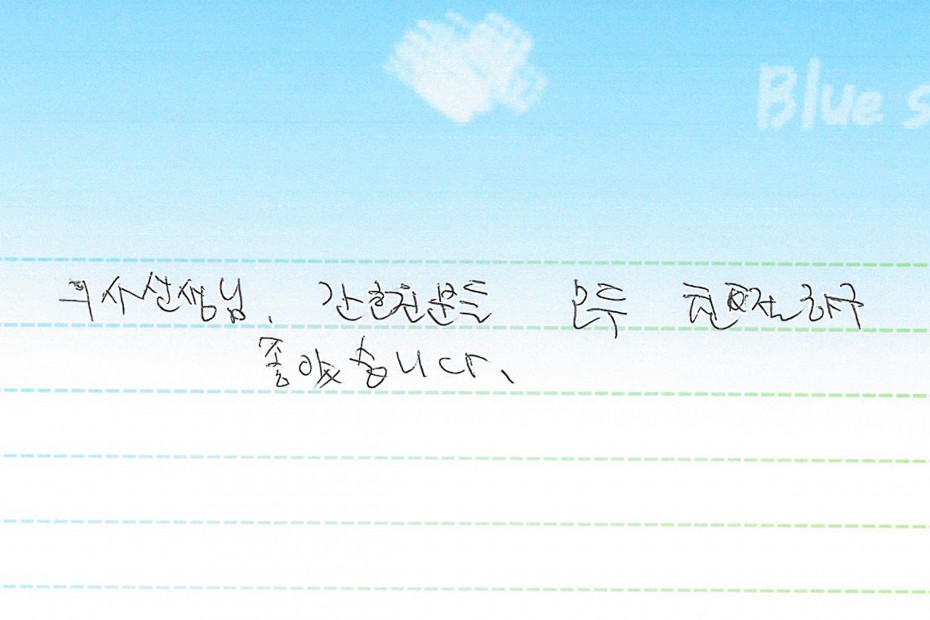 Blue s
의사선생님, 간호친분들 모두 친절하구
좋았습니다.